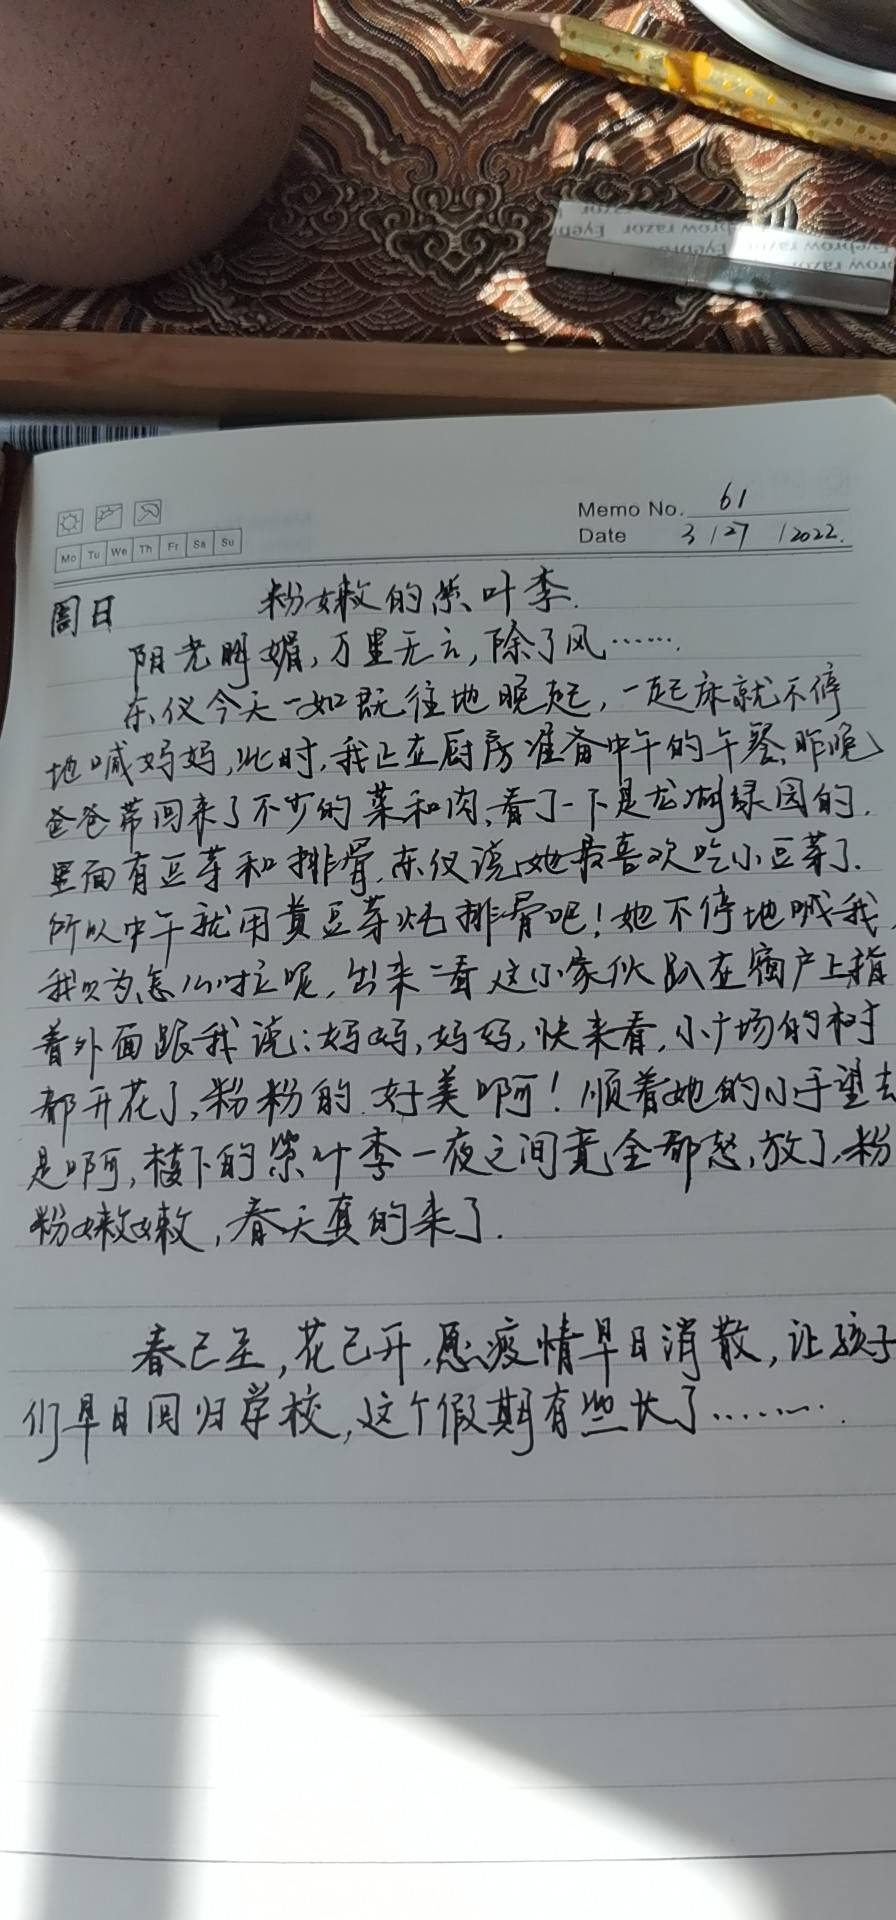 Eyebrow razor Eyebrow razor
Memo No. 61
Date 3/27/2022.
Mo Tu We Th Fr Sa Su
周日 粉嫩的紫叶李.
阳光明媚,万里无云,除了风……
东仪今天一如既往地晚起,一起床就不停
地喊妈妈,此时,我正在厨房准备中午的午餐,昨晚
爸爸带回来了不少的菜和肉,看了一下是龙湖绿园的.
里面有豆芽和排骨.东仪说她最喜欢吃小豆芽了.
所以中午就用黄豆芽炖排骨吧!她不停地喊我,
我以为怎么啦呢,出来一看这小家伙趴在窗户上指
着外面跟我说:妈妈,妈妈,快来看,小广场的树
都开花了,粉粉的.好美啊!顺着她的小手望去
是啊,楼下的紫叶李一夜之间竟全都怒放了,粉
粉嫩嫩,春天真的来了.
春已至,花已开,愿疫情早日消散,让孩子
们早日回归学校,这个假期有些长了………